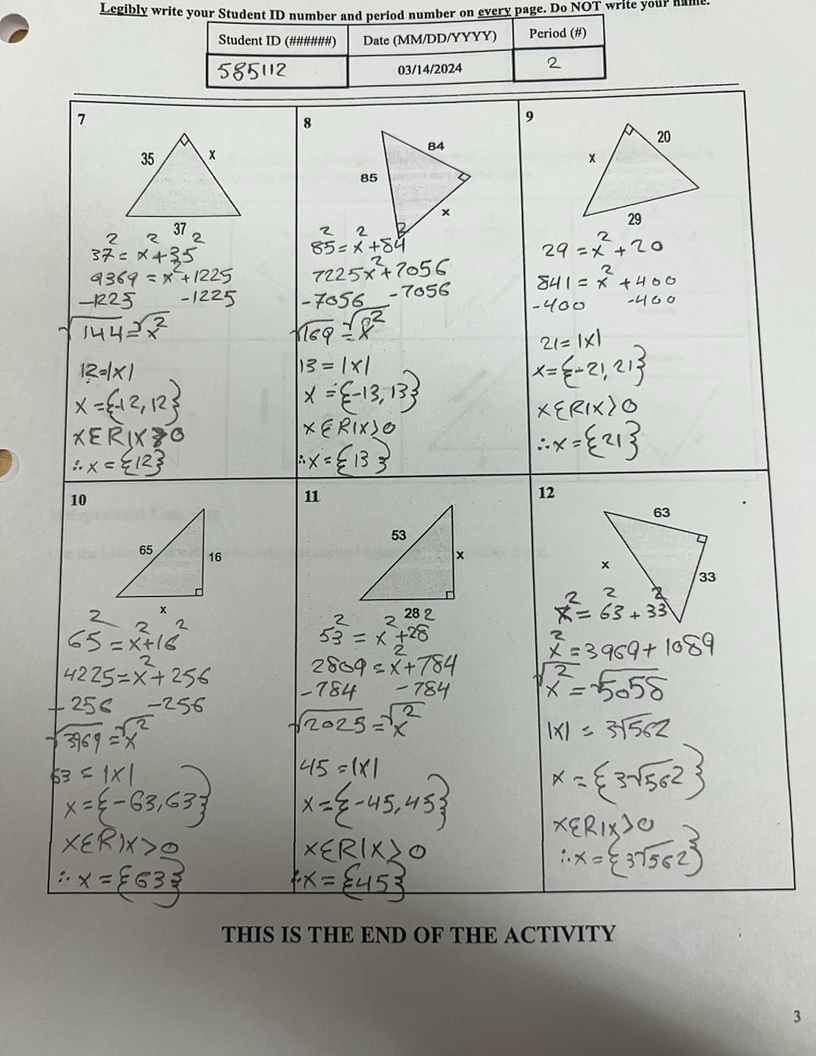 Legibly write your Student ID number and period number on every page. Do NOT write your name.
Student ID (######) Date (MM/DD/YYYY) Period (#)
585112 03/14/2024 2
7
35 x
37
37² = x² + 35²
9369 = x² + 1225
-1225 -1225
√144 = √x²
12 = |x|
x = {-12, 12}
x∈R|x>0
∴ x = {12}
8
84
85
x
85² = x² + 84²
7225x² + 7056
-7056 -7056
√169 = √x²
13 = |x|
x = {-13, 13}
x∈R|x>0
∴ x = {13}
9
20
x
29
29 = x² + 20
841 = x² + 400
-400 -400
21 = |x|
x = {-21, 21}
x∈R|x>0
∴ x = {21}
10
65 16
x
65² = x² + 16²
4225 = x² + 256
-256 -256
√3969 = √x²
63 = |x|
x = {-63, 63}
x∈R|x>0
∴ x = {63}
11
53 x
28
53² = x² + 28²
2809 = x² + 784
-784 -784
√2025 = √x²
45 = |x|
x = {-45, 45}
x∈R|x>0
∴ x = {45}
12
63
x 33
x² = 63² + 33²
x² = 3969 + 1089
√x² = √5058
|x| = 3√562
x = {3√562}
x∈R|x>0
∴ x = {3√562}
THIS IS THE END OF THE ACTIVITY
3